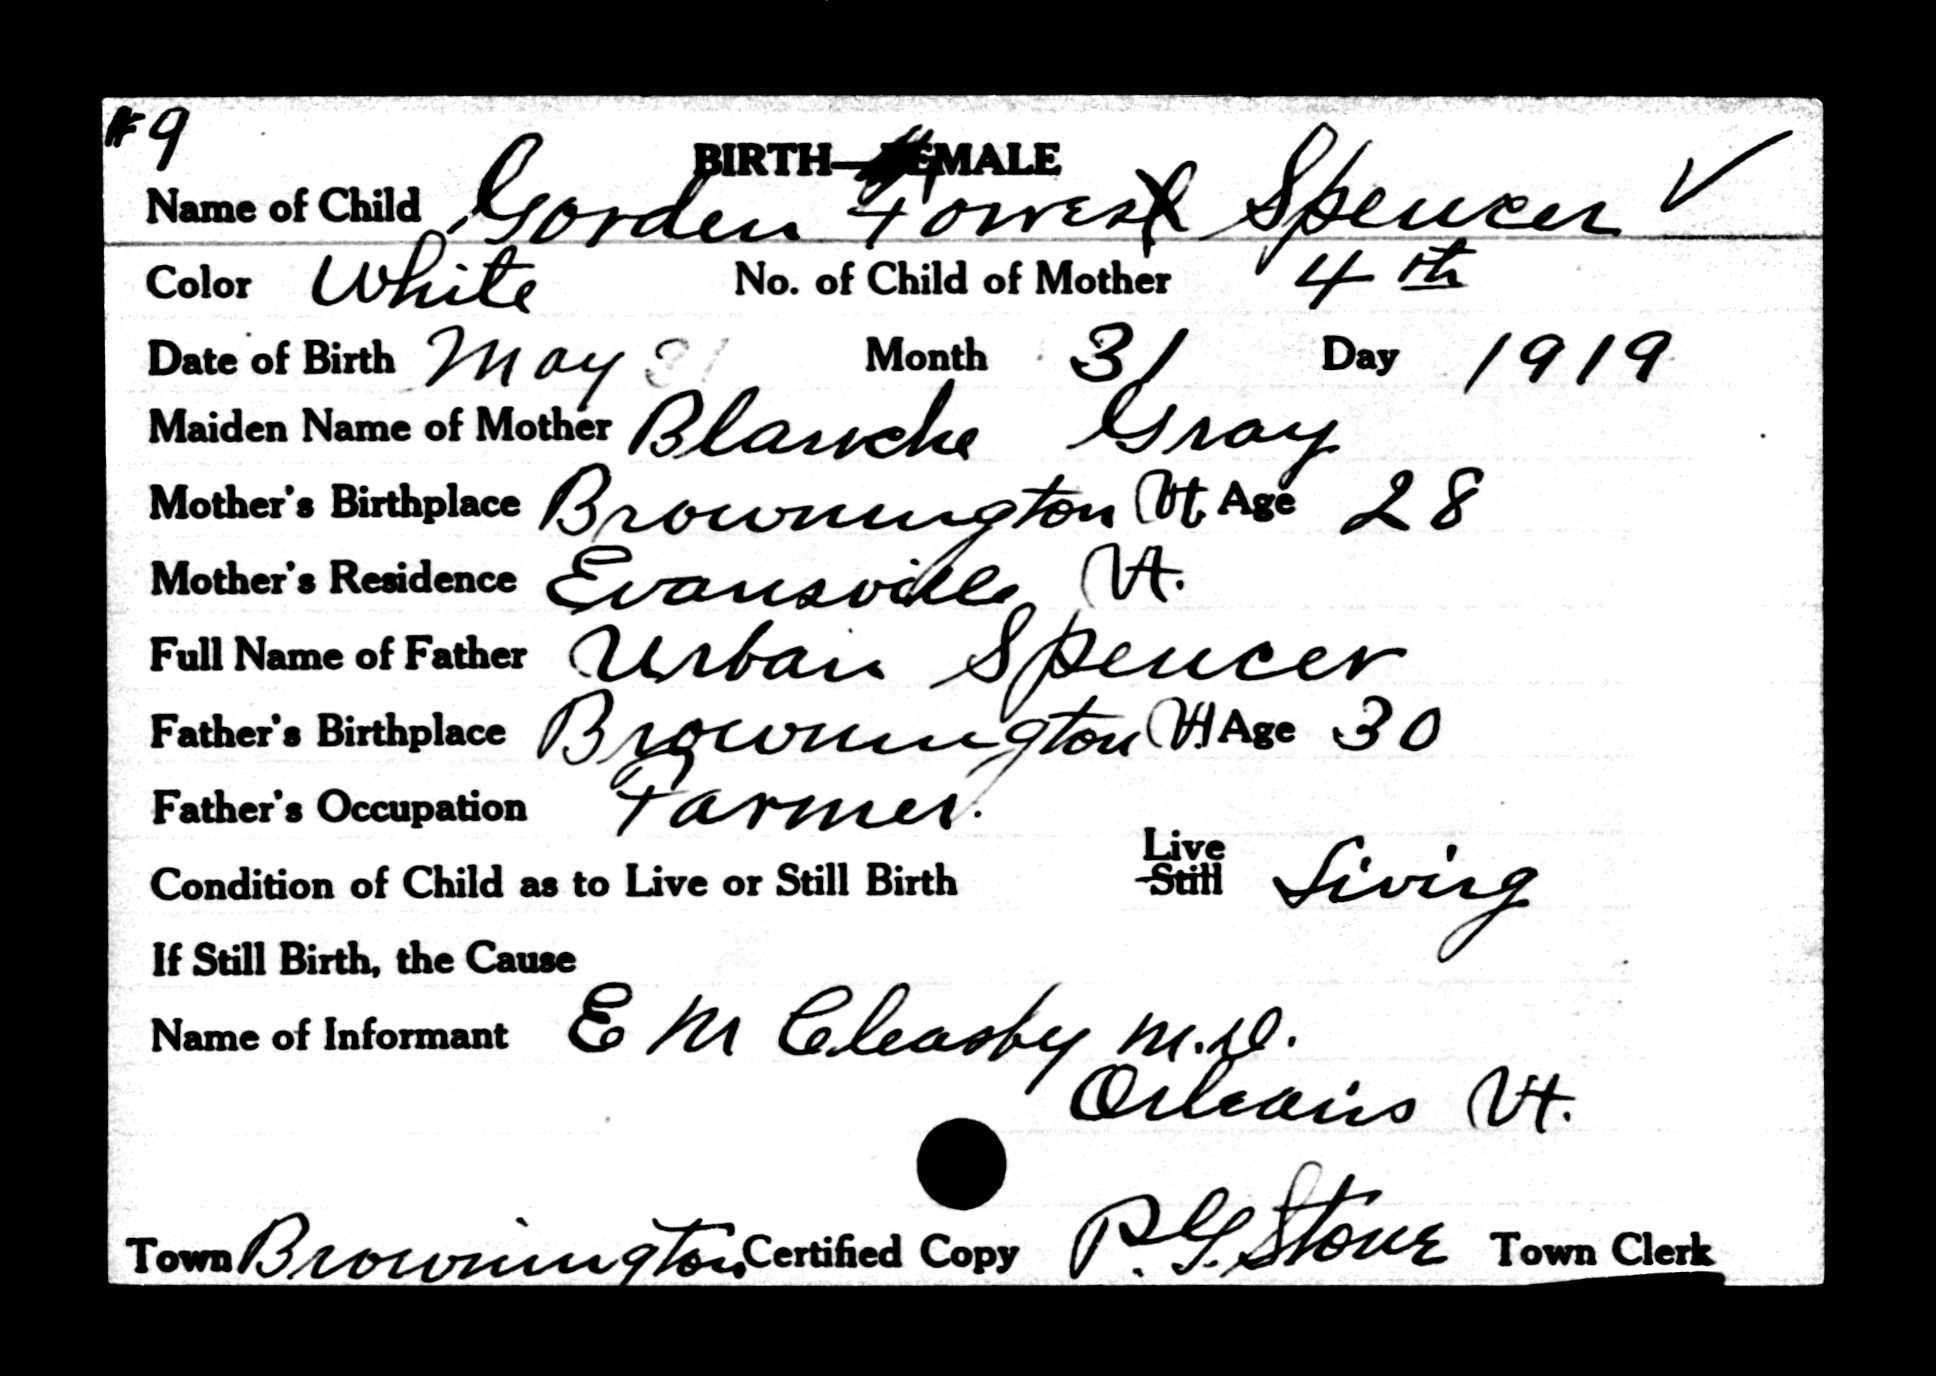 #9
BIRTH—MALE
Name of Child Gorden Forrest Spencer ✓
Color White No. of Child of Mother 4th
Date of Birth May 31 Month 31 Day 1919
Maiden Name of Mother Blanche Gray
Mother's Birthplace Brownington Vt Age 28
Mother's Residence Evansville Vt.
Full Name of Father Urban Spencer
Father's Birthplace Brownington Vt Age 30
Father's Occupation Farmer.
Condition of Child as to Live or Still Birth Live Still Living
If Still Birth, the Cause
Name of Informant E M Cleasby M.D.
Orleans Vt.
Town Brownington Certified Copy P. G. Stone Town Clerk